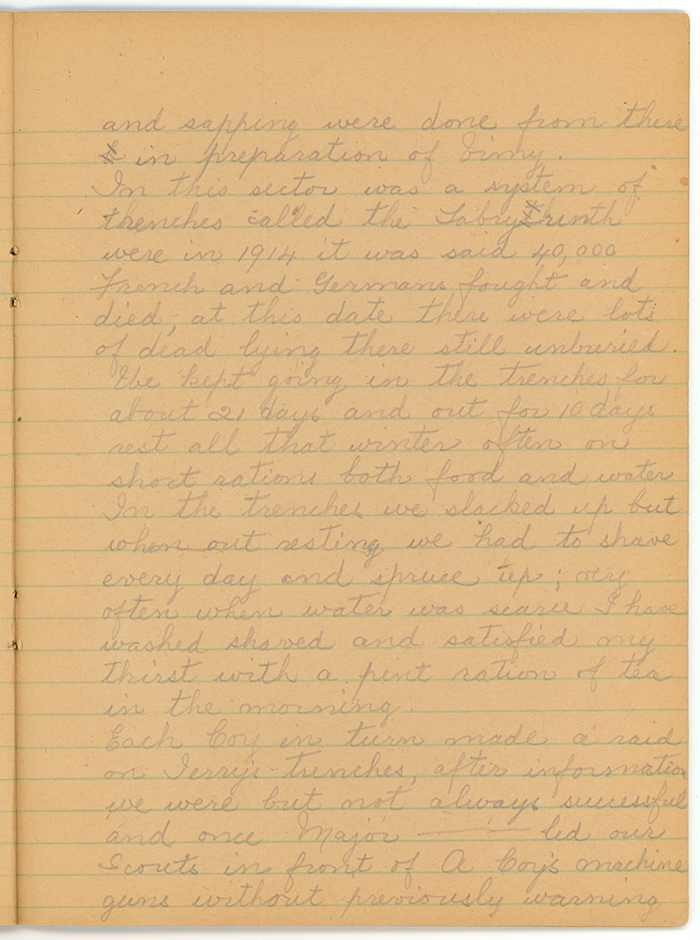 and sapping were done from there
in preparation of Vimy.
In this sector was a system of
trenches called the Labryrinth
were in 1914 it was said 40,000
French and Germans fought and
died, at this date there were lots
of dead lying there still unburied.
We kept going in the trenches for
about 21 days and out for 10 days
rest all that winter often on
short rations both food and water
In the trenches we slacked up but
when out resting we had to shave
every day and spruce up; very
often when water was scarce I have
washed shaved and satisfied my
thirst with a pint ration of tea
in the morning.
Each Coy in turn made a raid
on Jerry's trenches, after information
we were but not always successful
and once Major ——— led our
Scouts in front of A Coy's machine
guns without previously warning